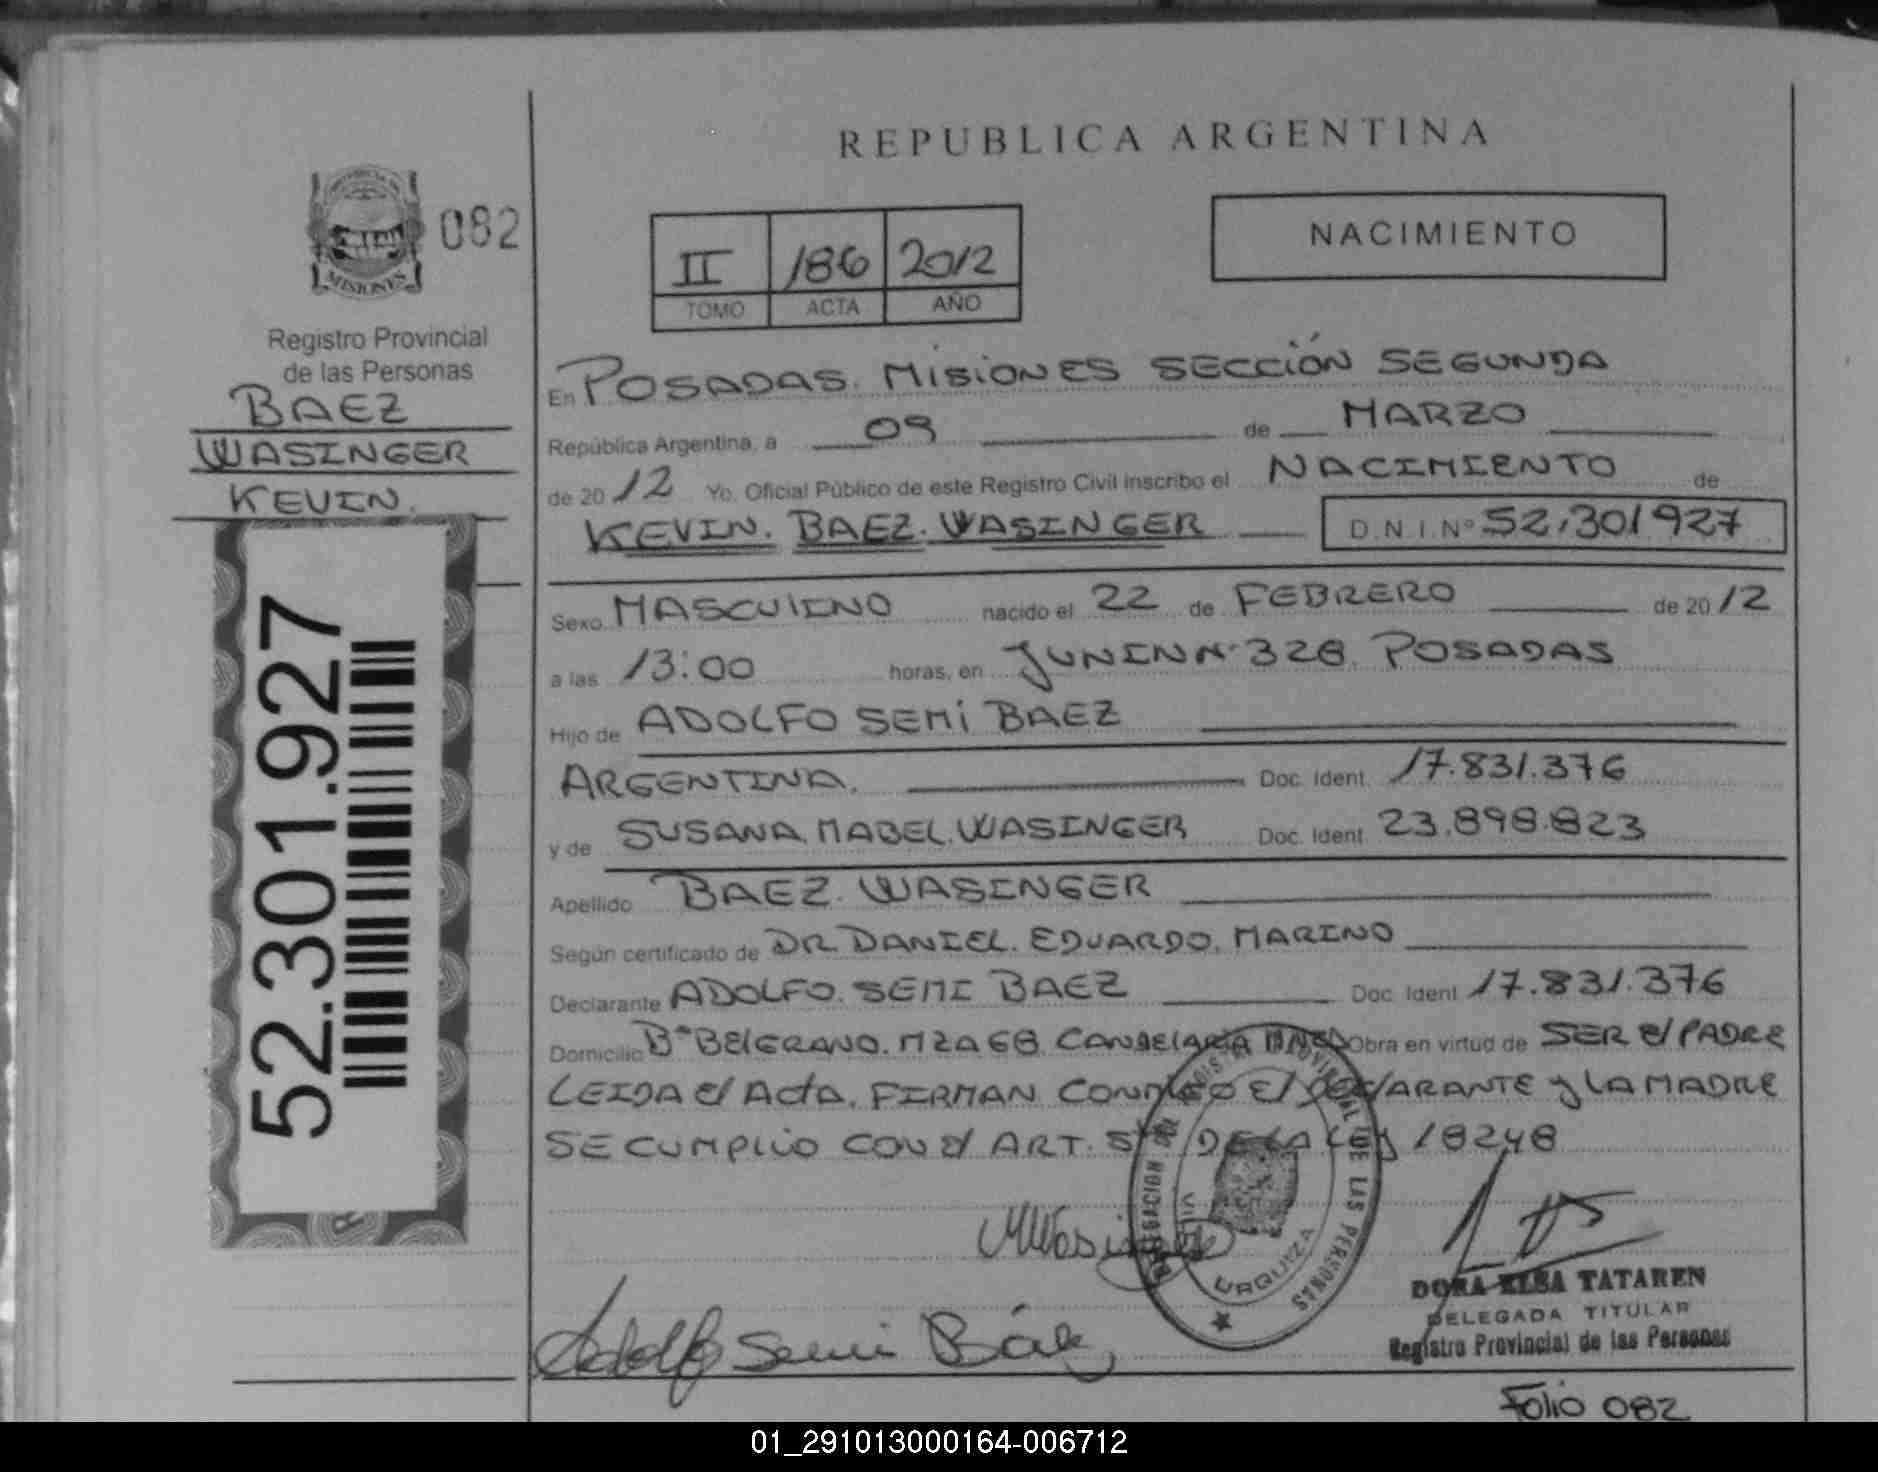 REPUBLICA ARGENTINA
NACIMIENTO
082
MISIONES
II 186 2012
TOMO ACTA AÑO
Registro Provincial
de las Personas
BAEZ
WASINGER
KEVIN.
52.301.927
En POSADAS. MISIONES SECCIÓN SEGUNDA
República Argentina, a 09 de MARZO
de 2012 Yo. Oficial Público de este Registro Civil inscribo el NACIMIENTO de
KEVIN. BAEZ. WASINGER D.N.I.Nº 52.301927
Sexo MASCULINO nacido el 22 de FEBRERO de 2012
a las 13:00 horas, en JUNIN Nº 328 POSADAS
Hijo de ADOLFO SEMI BAEZ
ARGENTINA. Doc. Ident. 17.831.376
y de SUSANA. MABEL. WASINGER Doc. Ident. 23.898.823
Apellido BAEZ. WASINGER
Según certificado de DR DANIEL. EDUARDO. MARINO
Declarante ADOLFO. SEMI BAEZ Doc. Ident 17.831.376
Domicilio Bº BELGRANO. MZA 68 CANDELARIA Obra en virtud de SER el PADRE
LEIDA el Acta. FIRMAN CONMIGO El DECLARANTE y LA MADRE
SE CUMPLIO CON el ART. DE LA LEY 18248
DELEGACION DEL REGISTRO PROVINCIAL DE LAS PERSONAS
VILLA URQUIZA
Adolfo Semi Báez
DORA ELBA TATAREN
DELEGADA TITULAR
Registro Provincial de las Personas
Folio 082
01_291013000164-006712